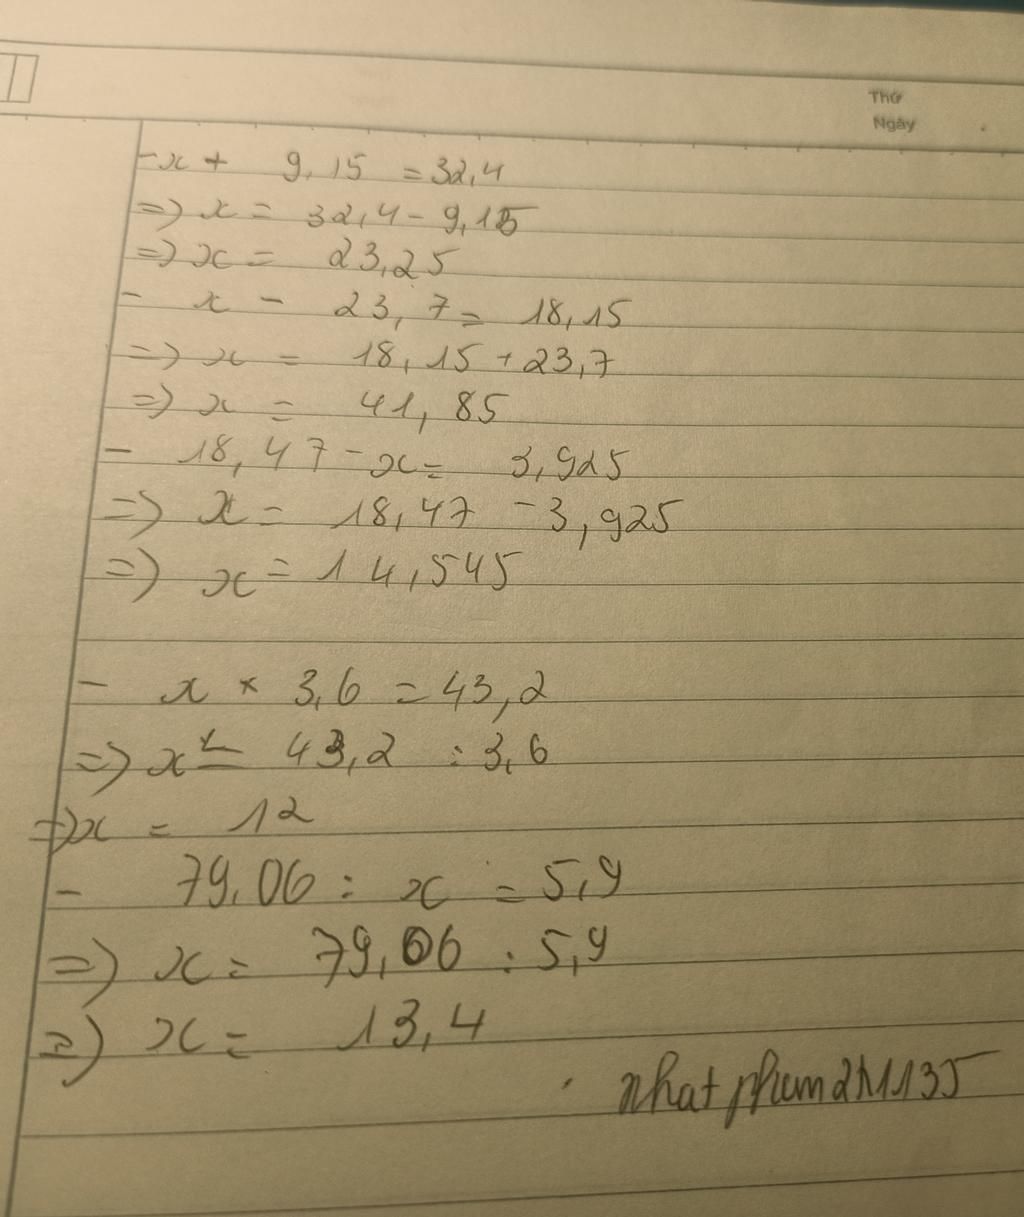 Thứ
Ngày
- x + 9,15 = 32,4
=> x = 32,4 - 9,15
=> x = 23,25
- x - 23,7 = 18,15
=> x = 18,15 + 23,7
=> x = 41,85
- 18,47 - x = 3,925
=> x = 18,47 - 3,925
=> x = 14,545
- x × 3,6 = 43,2
=> x = 43,2 : 3,6
=> x = 12
- 79,06 : x = 5,9
=> x = 79,06 : 5,9
=> x = 13,4